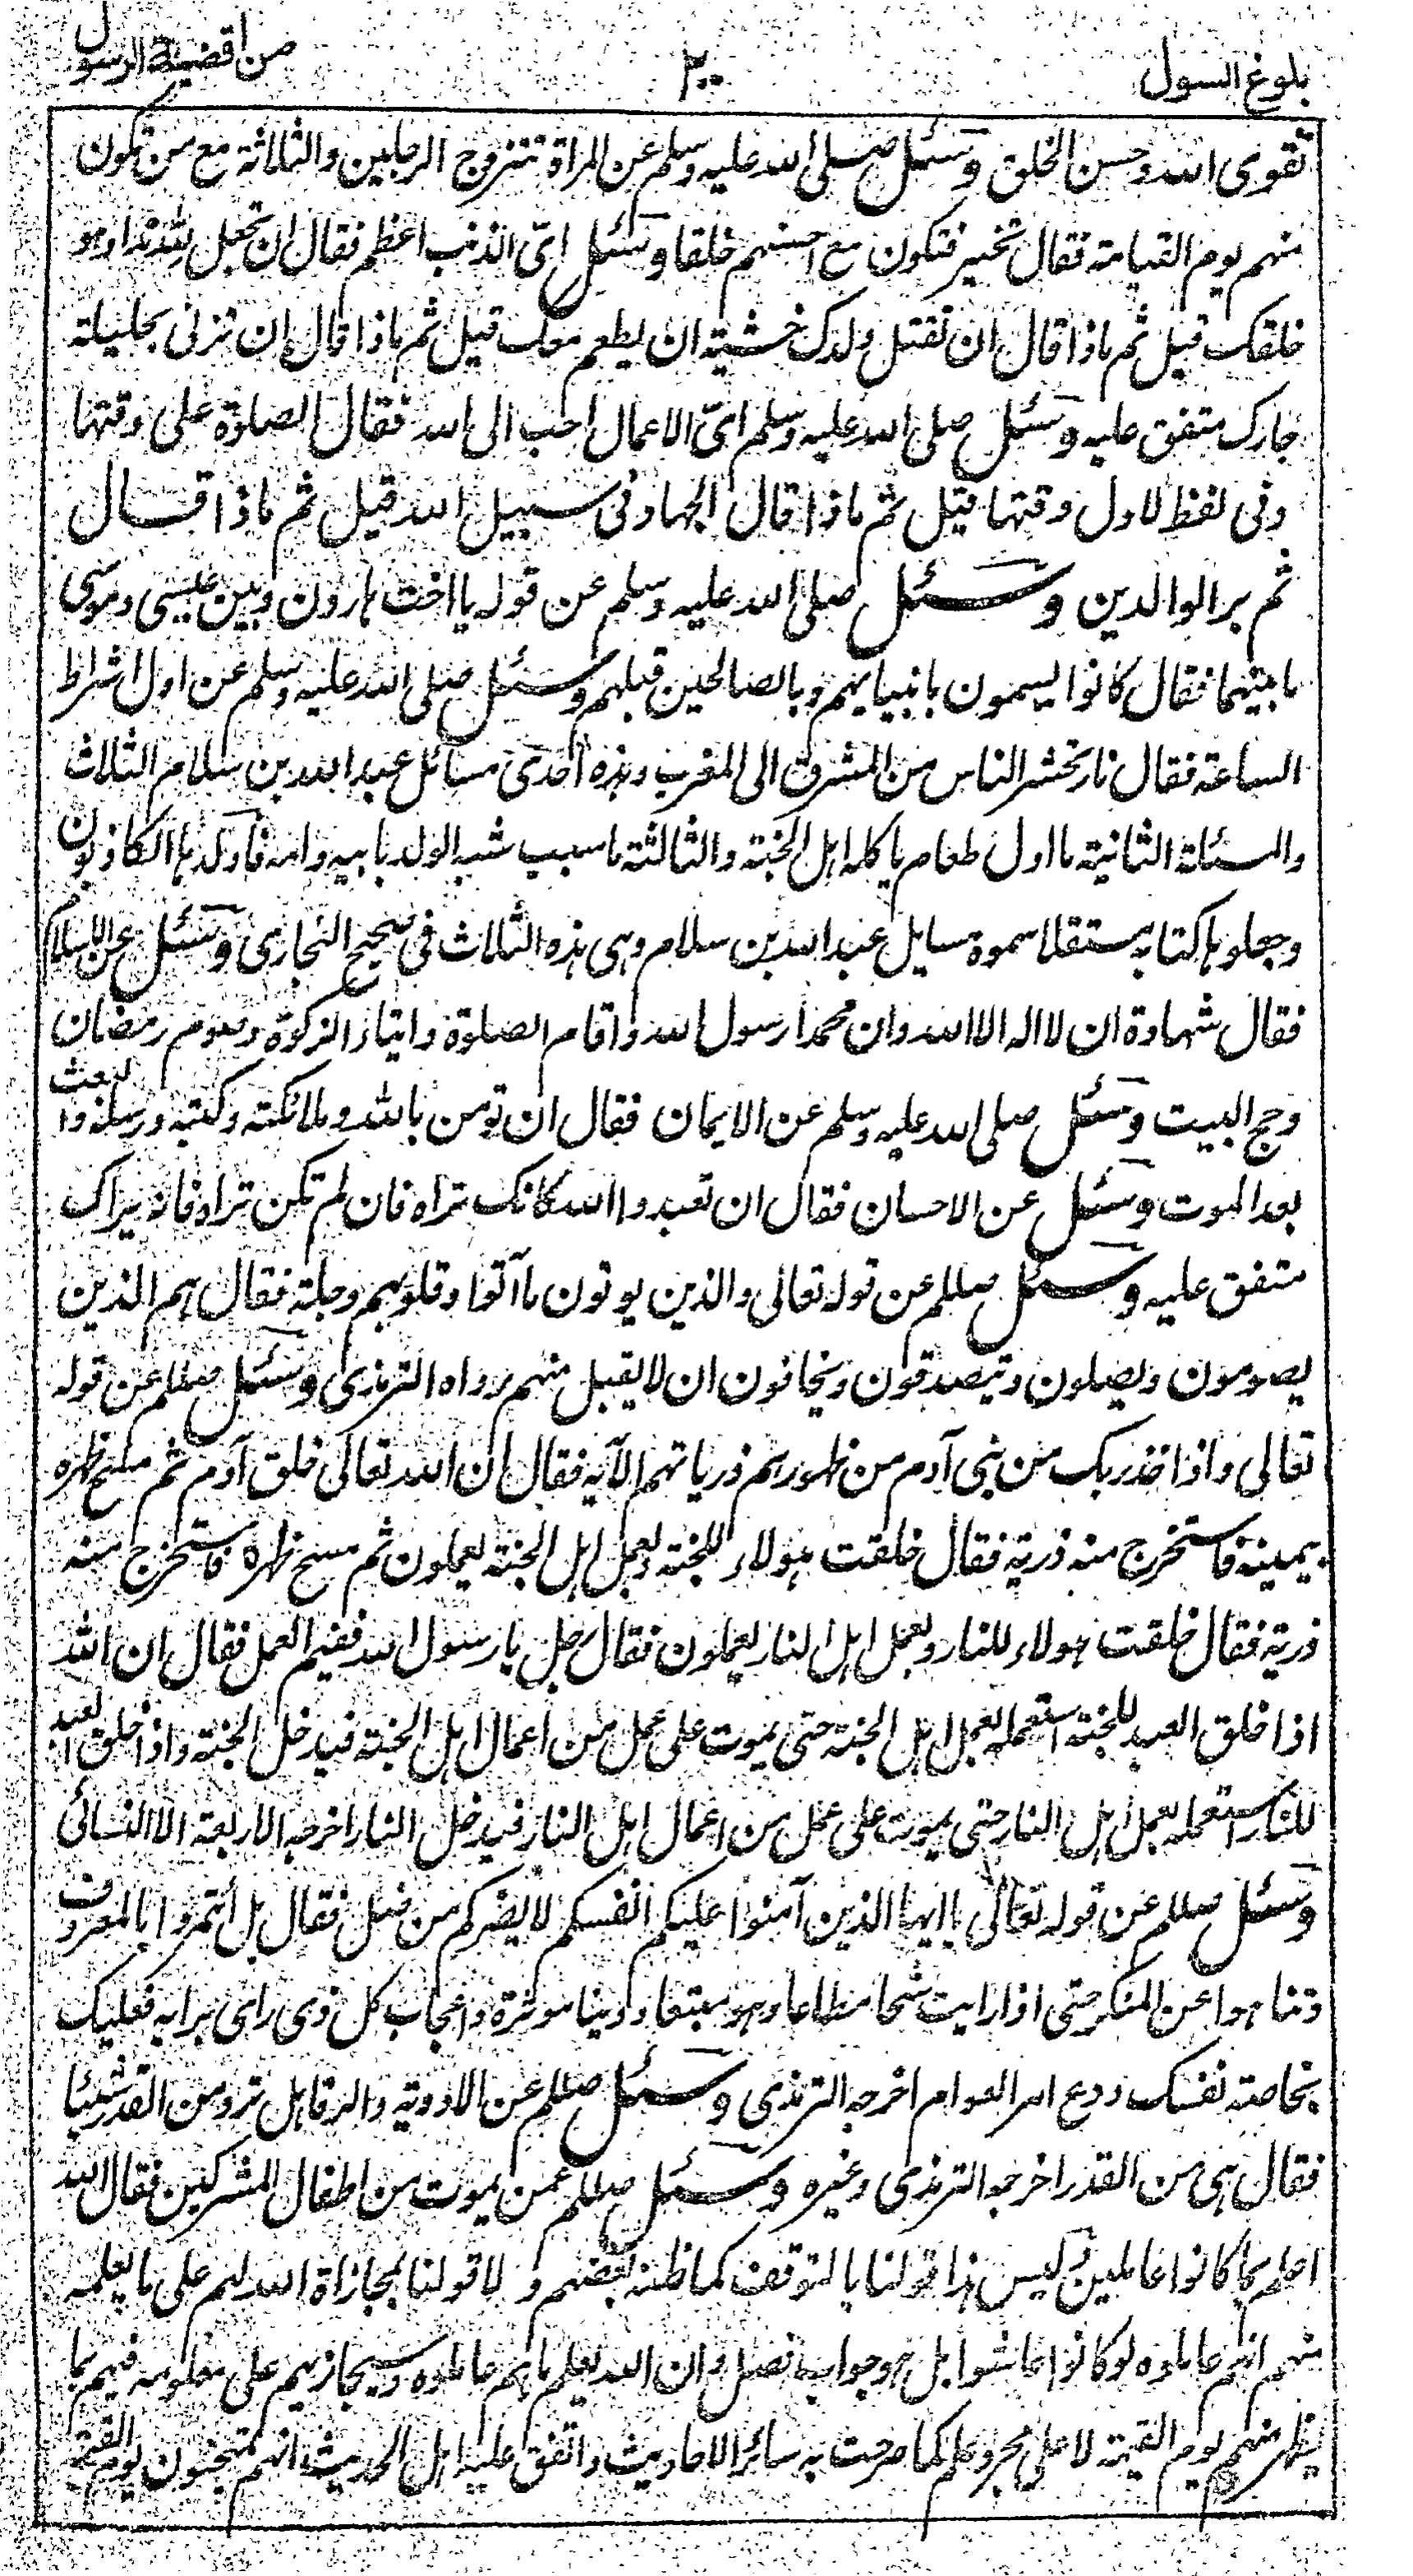 بلوغ السول
۲۰
من اقضية الرسول
تقوى الله وحسن الخلق وسئل صلى الله عليه وسلم عن المراة تتزوج الرجلين والثلاثة مع من تكون
منهم يوم القيامة فقال تخير فتكون مع احسنهم خلقا وسئل اى الذنب اعظم فقال ان تجعل لله ندا وهو
خلقك قيل ثم ماذا قال ان تقتل ولدك خشية ان يطعم معك قيل ثم ماذا قال ان تزنى بحليلة
جارك متفق عليه وسئل صلى الله عليه وسلم اىّ الاعمال احب الى الله فقال الصلوة على وقتها
وفى لفظ لاول وقتها قيل ثم ماذا قال الجهاد فى سبيل الله قيل ثم ماذا قال
ثم بر الوالدين وسئل صلى الله عليه وسلم عن قوله يا اخت هارون وبين عيسى وموسى
ما بينهما فقال كانوا يسمون بانبيايهم وبالصالحين قبلهم وسئل صلى الله عليه وسلم عن اول اشراط
الساعة فقال نار تحشر الناس من المشرق الى المغرب وهذه احدى مسائل عبد الله بن سلام الثلاث
والمسئلة الثانية ما اول طعام ياكله اهل الجنة والثالثة ما سبب شبه الولد بابيه وامه فاولدها الكاذبون
وجعلوها كتابا مستقلا سموه مسايل عبد الله بن سلام وهى هذه الثلاث فى صحيح البخارى وسئل عن الاسلام
فقال شهادة ان لا اله الا الله وان محمدا رسول الله واقام الصلوة وايتاء الزكوة وصوم رمضان
وحج البيت وسئل صلى الله عليه وسلم عن الايمان فقال ان تومن بالله وملائكته وكتبه ورسله والبعث
بعد الموت وسئل عن الاحسان فقال ان تعبدوا الله كانك تراه فان لم تكن تراه فانه يراك
متفق عليه وسئل صللم عن قوله تعالى والذين يوتون ما آتوا وقلوبهم وجلة فقال هم الذين
يصومون ويصلون وتيصدقون ويخافون ان لا يقبل منهم رواه الترمذى وسئل صللم عن قوله
تعالى واذ اخذ ربك من بنى آدم من ظهورهم ذرياتهم الآيه فقال ان الله تعالى خلق آدم ثم مسح ظهره
بيمينه فاستخرج منه ذرية فقال خلقت هولاء للجنة وبعمل اهل الجنة يعملون ثم مسح ظهره فاستخرج منه
ذرية فقال خلقت هولاء للنار وبعمل اهل النار يعملون فقال رجل يا رسول الله ففيم العمل فقال ان الله
اذا خلق العبد للجنة استعمله بعمل اهل الجنة حتى يموت على عمل من اعمال اهل الجنة فيدخل الجنة واذا خلق العبد
للنار استعمله بعمل اهل النار حتى يموت على عمل من اعمال اهل النار فيدخل النار اخرجه الاربعة الا النسائى
وسئل صللم عن قوله تعالى يا ايها الذين آمنوا عليكم انفسكم لا يضركم من ضل فقال بل أتمروا بالمعروف
وتناهوا عن المنكر حتى اذا رايت شحا مطاعا وهوى متبعا ودينا موثرة واعجاب كل ذى راى برايه فعليك
بخاصة نفسك ودع امر العوام اخرجه الترمذى وسئل صللم عن الادوية والرقا هل ترد من القدر شيئا
فقال هى من القدر اخرجه الترمذى وغيره وسئل صللم عمن يموت من اطفال المشركين فقال الله
اعلم بما كانوا عاملين وليس هذا قولنا بالتوقف كما ظنه بعضهم ولا قولنا بمجازاة الله لهم على ما يعلمه
منهم انهم عاملوه لو كانوا عاشوا بل هو جواب فصل وان الله يعلم ما هم عاملوه وسيجازيهم على معلومه فيهم بما
يظهر منهم يوم القيمة لا على مجرد علمه كما صرحت به سائر الاحاديث واتفق عليه اهل الحديث انهم يمتحنون يوم القيمة